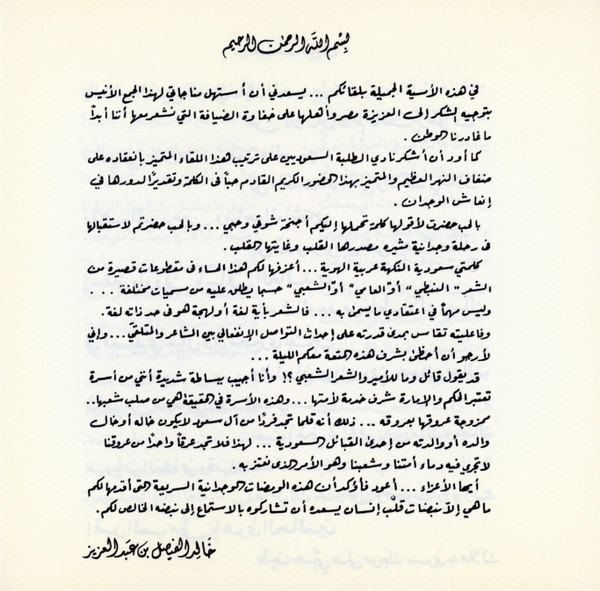 بسم الله الرحمن الرحيم
في هذه الأمسية الجميلة بلقائكم ... يسعدني أن أستهل مناجاتي لهذا الجمع الأنيس
بتوجيه الشكر إلى العزيزة مصر وأهلها على حفاوة الضيافة التي نشعر معها أننا أبداً
ما غادرنا الوطن .
كما أود أن أشكر نادي الطلبة السعوديين على ترتيب هذا اللقاء المتميز بانعقاده على
ضفاف النهر العظيم والمتميز بهذا الحضور الكريم القادم حباً في الكلمة وتقديراً لدورها في
إنعاش الوجدان .
بالحب حضرت لأقولها كلمة تحملها إليكم أجنحة شوقي وحبي ... وبالحب حضرتم لاستقبالها
في رحلة وجدانية مثيره مصدرها القلب وغايتها القلب .
كلمتي سعودية النكهة عربية الهوية ... أعزفها لكم هذا المساء في مقطوعات قصيرة من
الشعر " النبطي " أو " العامي " أو " الشعبي " حسبما يطلق عليه من مسميات مختلفة ...
وليس مهماً في اعتقادي ما يسمى به .... فالشعر بأية لغة أو لهجة هو في حد ذاته لغة .
وفاعليته تقاس بمدى قدرته على إحداث التواصل الإنفعالي بين الشاعر والمتلقي ... وإني
لأرجو أن أحظى بشرف هذه المتعة معكم الليلة ...
قد يقول قائل وما للأمير والشعر الشعبي ؟! وأنا أجيب ببساطة شديدة أنني من أسرة
تعتبر الحكم والإمارة شرف خدمة لأمتها ... وهذه الأسرة في الحقيقة هي من صلب شعبها ..
ممزوجة عروقها بعروقه ... ذلك أنه قلما تجد فرداً من آل سعود لا يكون خاله أو خال
والده أو والدته من إحدى القبائل السعودية ... لهذا فلا تجد عرقاً واحداً من عروقنا
لا تجري فيه دماء أمتنا وشعبنا وهو الأمر الذي نعتز به .
أيها الأعزاء ... أعود فأؤكد أن هذه الومضات الوجدانية السريعة التي أقدمها لكم
ما هي إلا نبضات قلب إنسان يسعده أن تشاركوه بالاستماع إلى نبضه الخالص لكم .
خالد الفيصل بن عبد العزيز